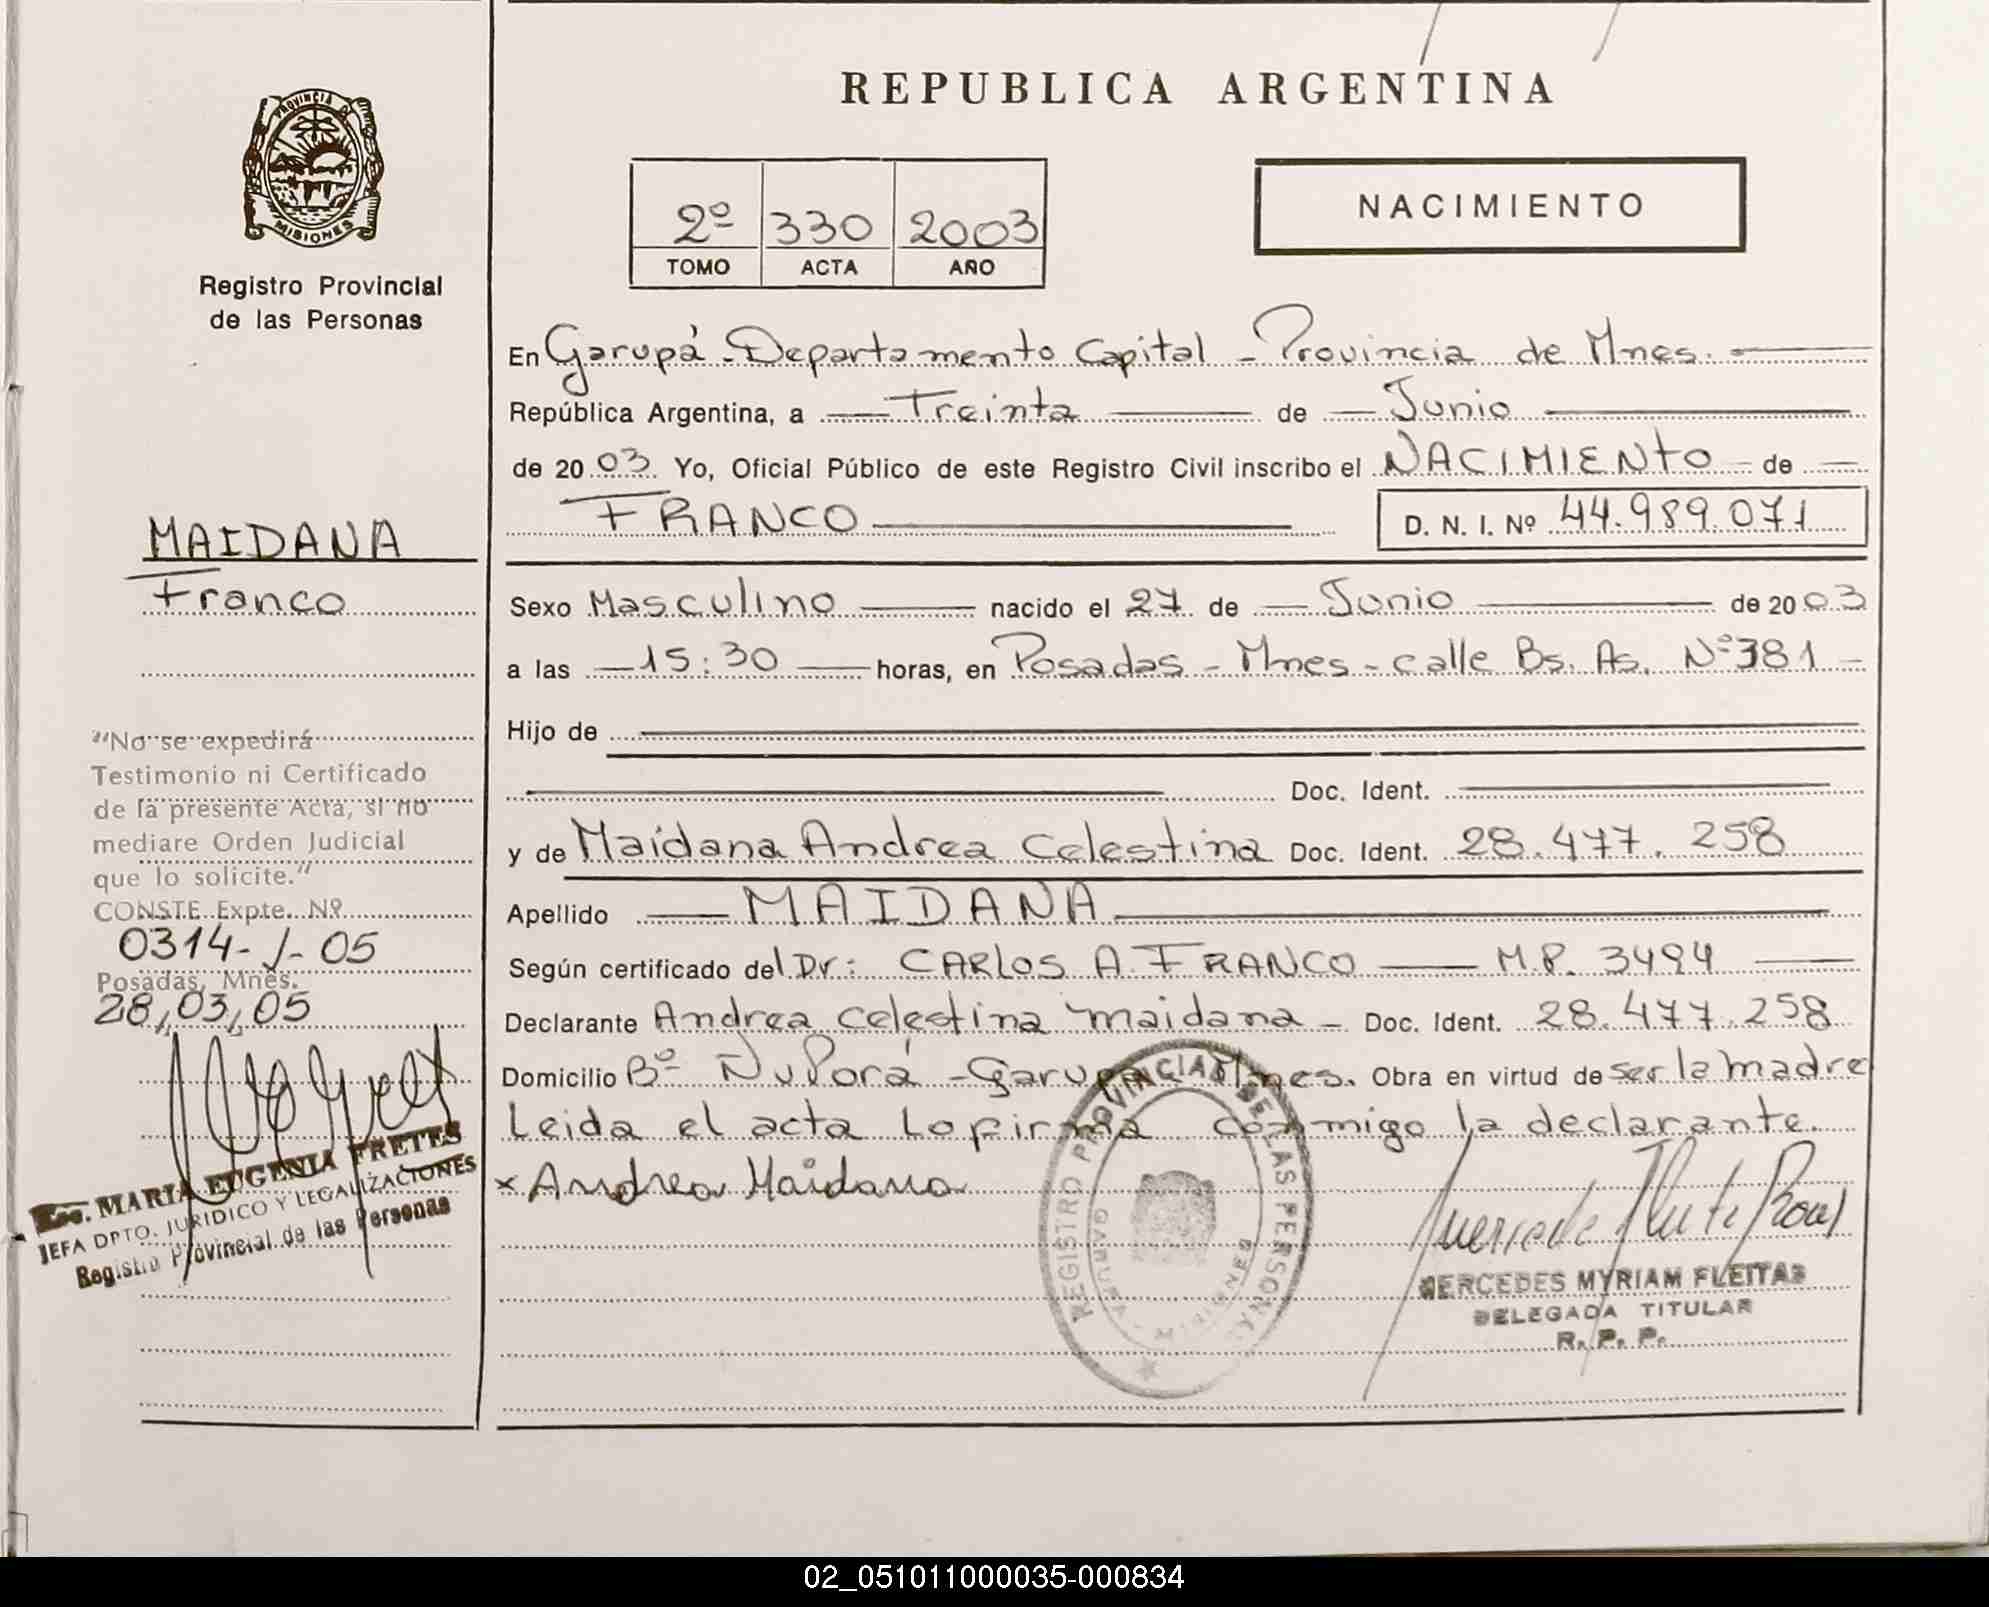 REPUBLICA ARGENTINA
PROVINCIA D
MISIONES
Registro Provincial
de las Personas
2º 330 2003
TOMO ACTA AÑO
NACIMIENTO
En Garupá - Departamento Capital - Provincia de Mnes.
República Argentina, a Treinta de Junio
de 2003 Yo, Oficial Público de este Registro Civil inscribo el NACIMIENTO de
FRANCO D. N. I. Nº 44.989.071
MAIDANA
Franco
Sexo Masculino nacido el 27 de Junio de 2003
a las 15:30 horas, en Posadas - Mnes - calle Bs. As. Nº 381
Hijo de
Doc. Ident.
y de Maidana Andrea Celestina Doc. Ident. 28.477.258
Apellido MAIDANA
Según certificado del Dr: CARLOS A. FRANCO M.P. 3494
Declarante Andrea Celestina Maidana - Doc. Ident. 28.477.258
Domicilio Bº Ñu Porá - Garupá Mnes. Obra en virtud de ser la madre
Leida el acta la firma conmigo la declarante.
x Andrea Maidana
"No se expedirá
Testimonio ni Certificado
de la presente Acta, si no
mediare Orden Judicial
que lo solicite."
CONSTE Expte. Nº
0314-J-05
Posadas, Mnes.
28,03,05
Esc. MARIA EUGENIA FRETES
JEFA DPTO. JURIDICO Y LEGALIZACIONES
Registro Provincial de las Personas
REGISTRO PROVINCIAL DE LAS PERSONAS
GARUPA - MISIONES
MERCEDES MYRIAM FLEITAS
DELEGADA TITULAR
R. P. P.
02_051011000035-000834